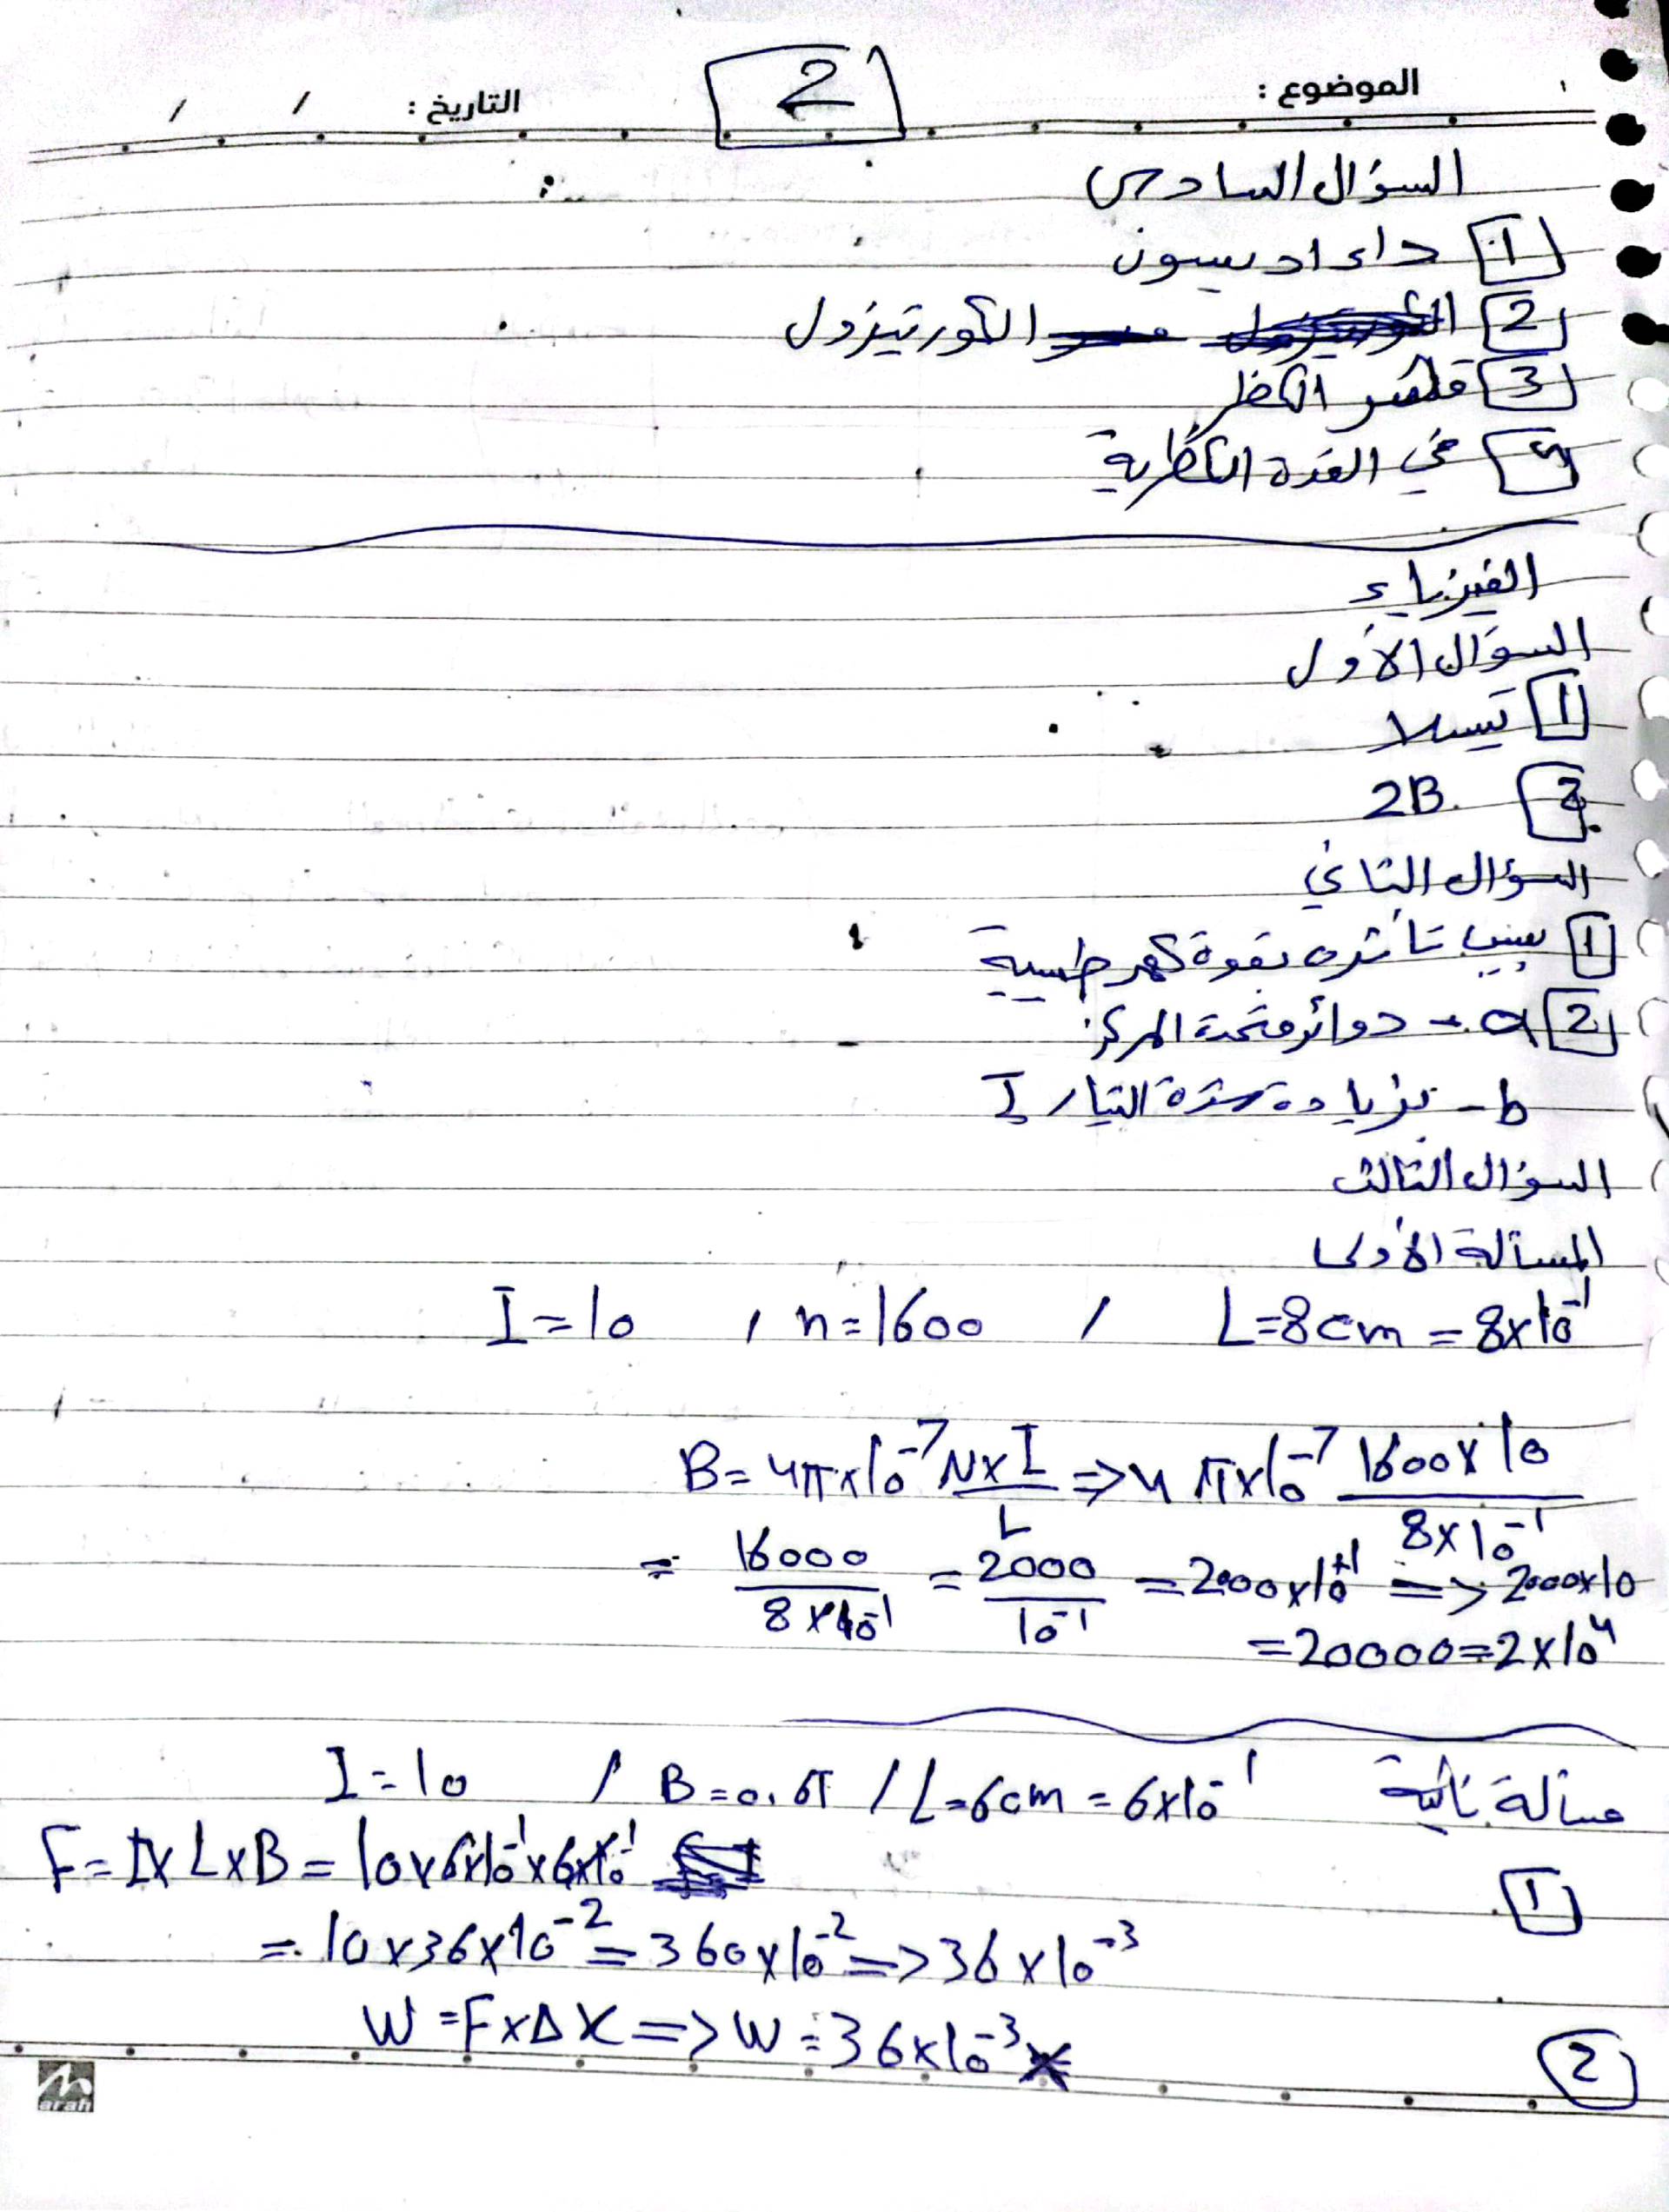 الموضوع :
2
التاريخ : / /
السؤال السادس
1 داء اديسون
2 الكورتيزول
3 قشر الكظر
4 في الغدة الكظرية
الفيزياء
السؤال الأول
1 تيسلا
2 2B.
السؤال الثاني
1 بسبب تأثره بقوة كهرطيسية
2 a - دوائر متحدة المركز
b - بزيادة شدة التيار I
السؤال الثالث
المسألة الأولى
I=10 , n=1600 / L=8cm = 8x10^-1
B=4πx10^-7 NxI/L => 4πx10^-7 1600x10/8x10^-1
= 16000/8x10^-1 = 2000/10^-1 = 2000x10^+1 => 2000x10
=20000=2x10^4
مسألة ثانية
I=10 / B=0.6T / L=6cm = 6x10^-1
1
F=IxLxB=10x6x10^-1x6x10^-1
= 10x36x10^-2=360x10^-2=>36x10^-3
2
W=FxΔX=>W=36x10^-3x
arah